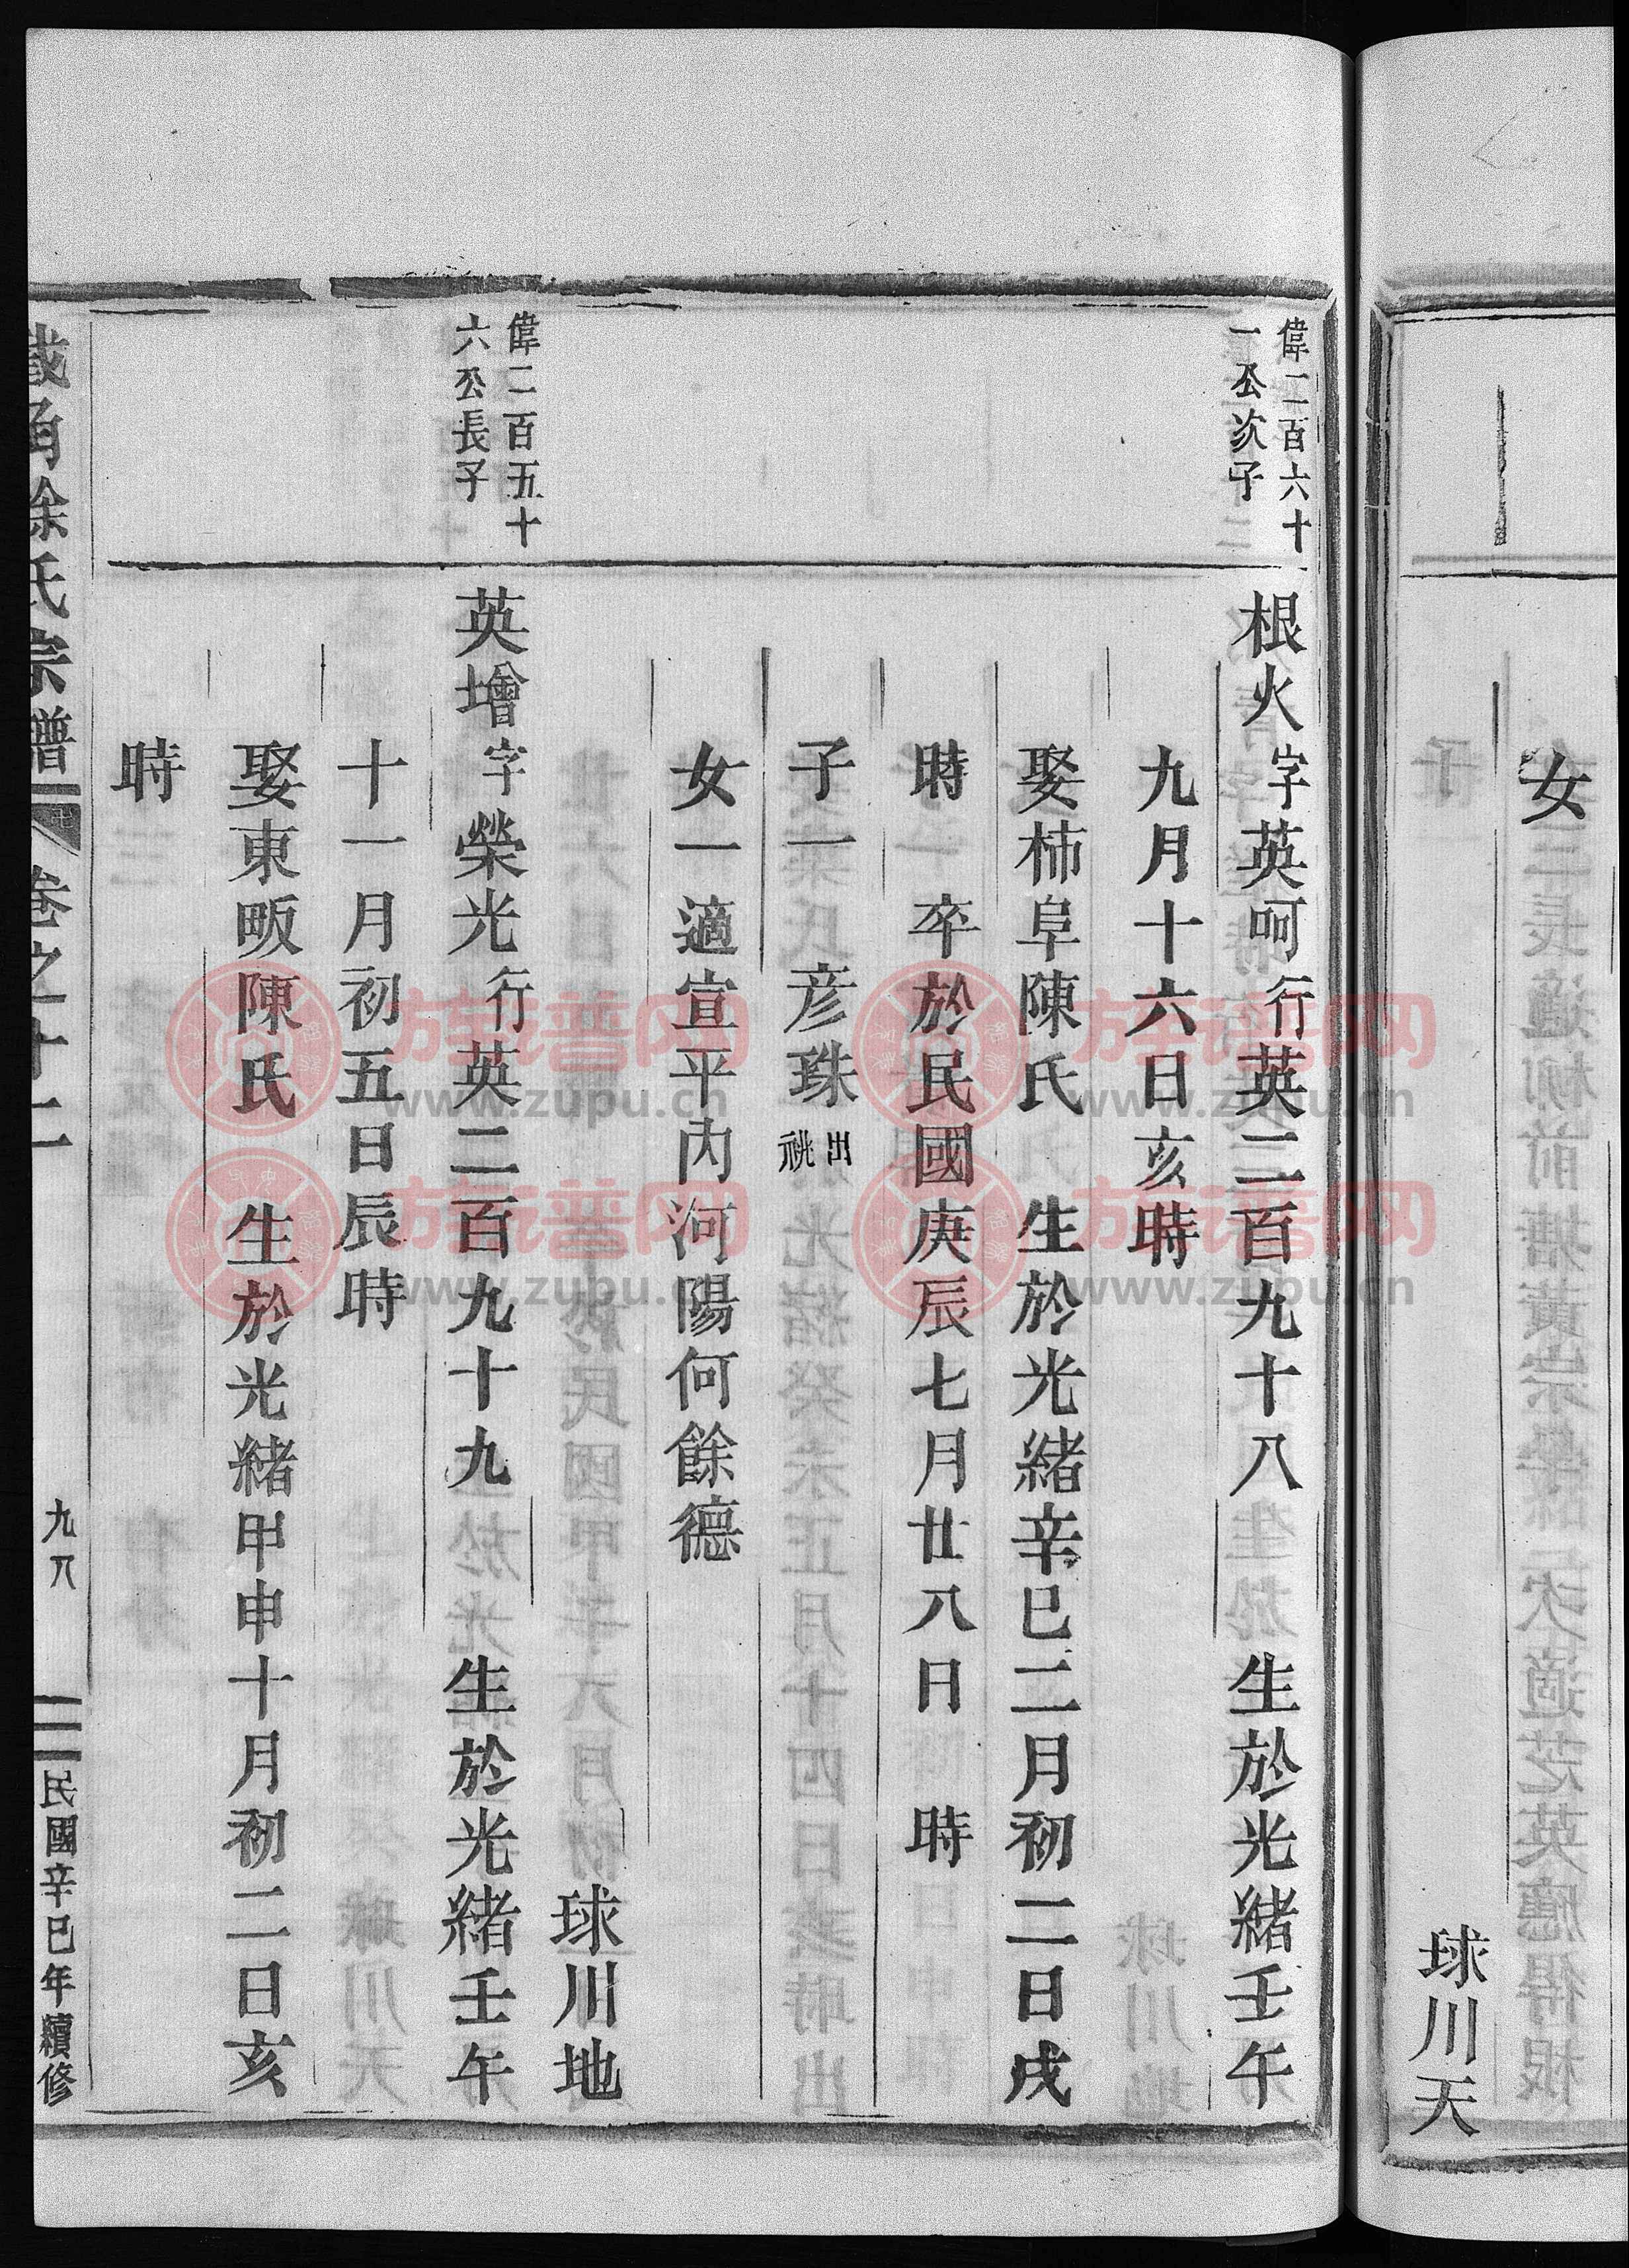 女
球川天
偉二百六十
一公次子
根火字英呵行英二百九十八　生於光緒壬午
九月十六日亥時
娶柿阜陳氏　生於光緒辛巳二月初二日戌
時　卒於民國庚辰七月廿八日　時
子一　彥珠出祧
女一適宣平內河陽何餘德
球川地
偉二百五十
六公長子
英增字榮光行英二百九十九　生於光緒壬午
十一月初五日辰時
娶東畈陳氏　生於光緒甲申十月初二日亥
時
徐氏宗譜　卷之十二　九八　民國辛巳年續修
族谱网
www.zupu.cn
族谱网
www.zupu.cn
族谱网
www.zupu.cn
族谱网
www.zupu.cn